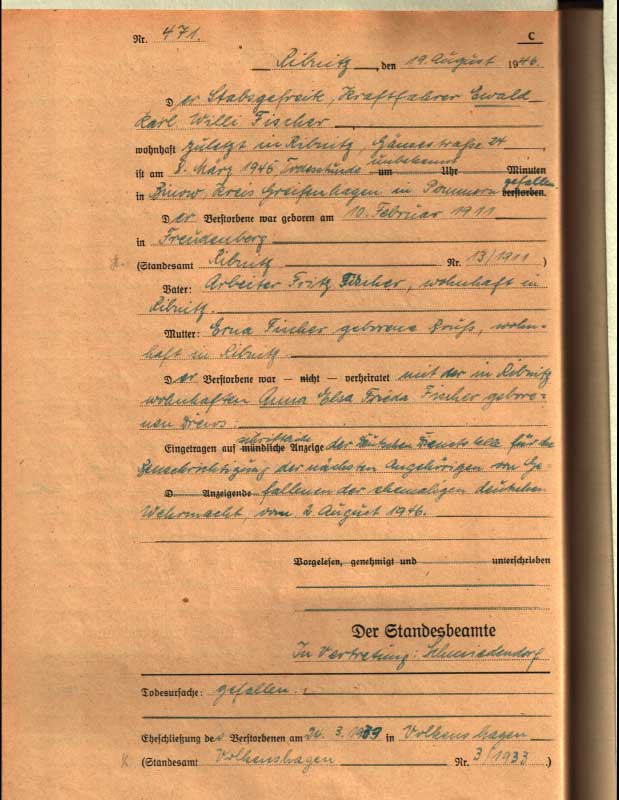 Nr. 471.
C
Ribnitz, den 19. August 1946.
Der Stabsgefreite, Kraftfahrer Ewald
Karl Willi Fischer
wohnhaft zuletzt in Ribnitz, Gänsestraße 24,
ist am 8. März 1945 Todesstunde unbekannt um Uhr Minuten
in Binow, Kreis Greifenhagen in Pommern gefallen verstorben.
Der Verstorbene war geboren am 10. Februar 1911
in Freudenberg
(Standesamt Ribnitz Nr. 13/1911)
Vater: Arbeiter Fritz Fischer, wohnhaft in
Ribnitz.
Mutter: Erna Fischer geborene Pruß, wohn-
haft in Ribnitz.
Der Verstorbene war — nicht — verheiratet mit der in Ribnitz
wohnhaften Anna Elsa Frieda Fischer gebore-
nen Drews.
Eingetragen auf schriftliche mündliche Anzeige der Deutschen Dienststelle für die
Benachrichtigung der nächsten Angehörigen von Ge-
D Anzeigende fallenen der ehemaligen deutschen
Wehrmacht, vom 2. August 1946.
Vorgelesen, genehmigt und unterschrieben
Der Standesbeamte
In Vertretung: Schmiedendorf
Todesursache: gefallen.
Eheschließung des Verstorbenen am 24. 3. 1939 in Volkenshagen
(Standesamt Volkenshagen Nr. 3/1933.)